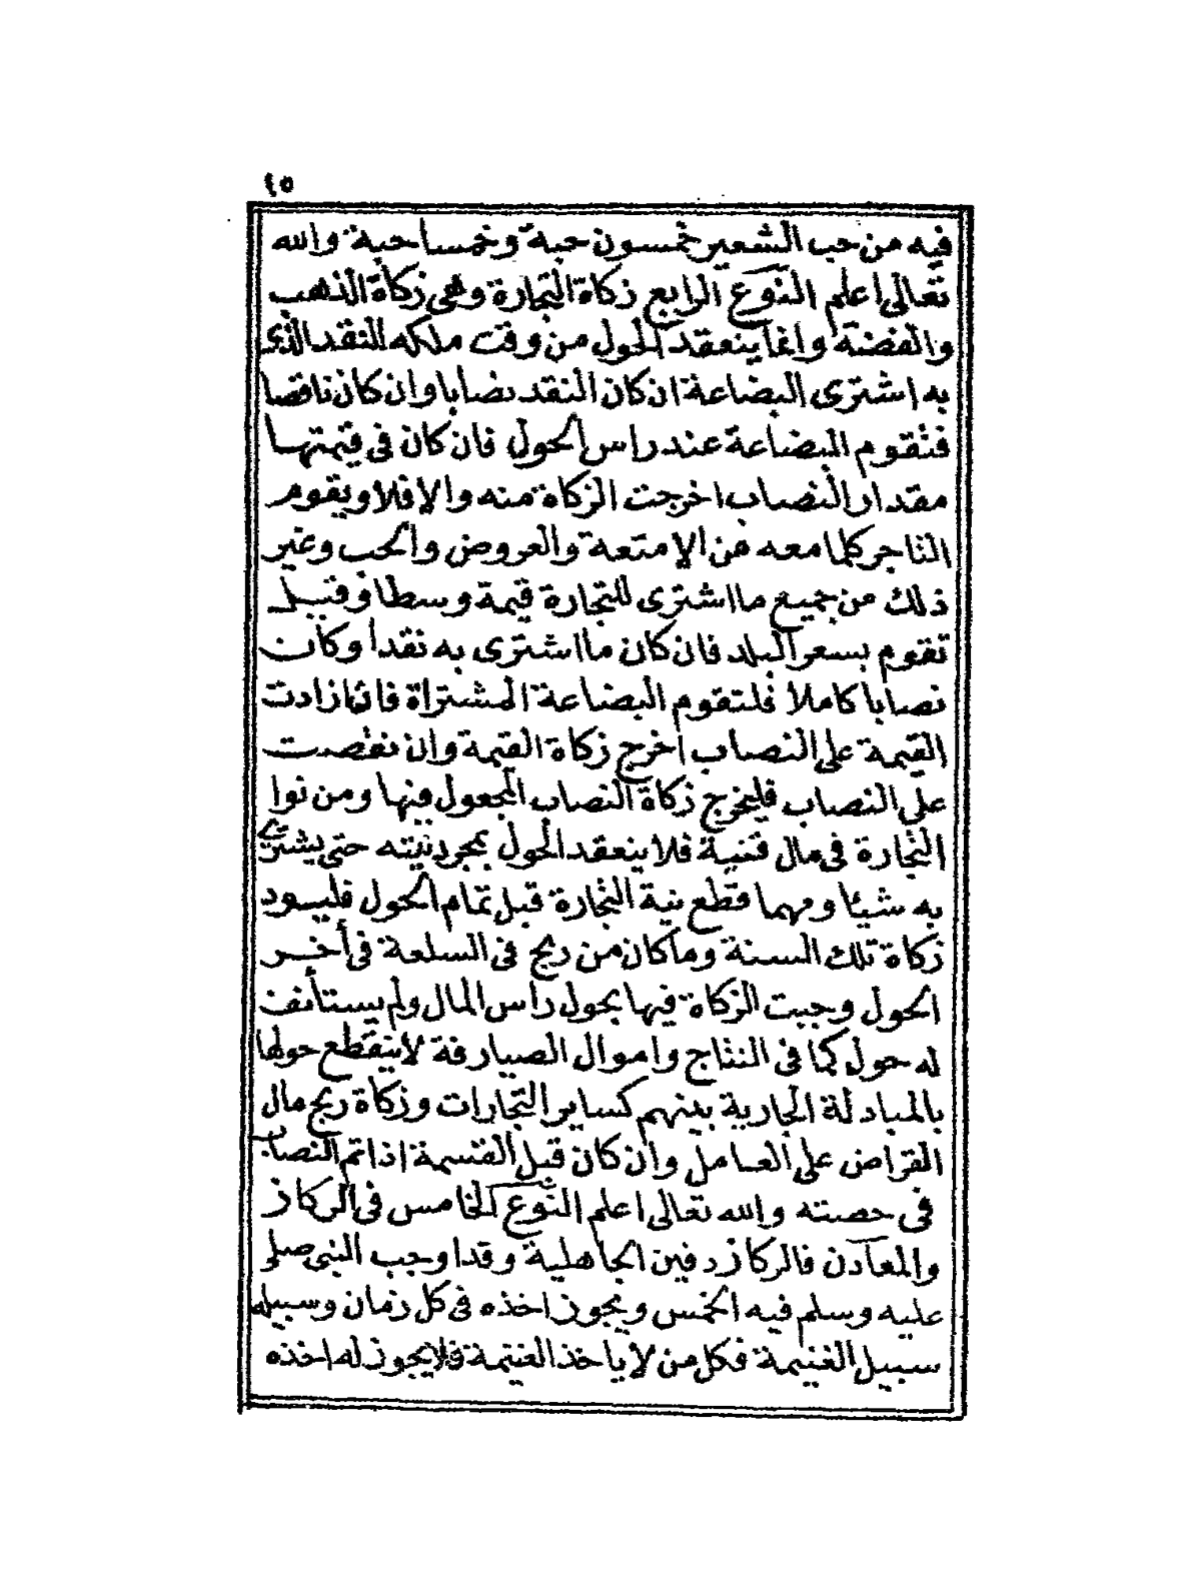 ٤٥
فيه من حب الشعير خمسون حبة وخمسا حبة والله
تعالى اعلم النوع الرابع زكاة التجارة وهى زكاة الذهب
والفضة وانما ينعقد الحول من وقت ملكه للنقد الذى
به اشترى البضاعة ان كان النقد نصابا وان كان ناقصا
فتقوم البضاعة عند راس الحول فان كان فى قيمتها
مقدار النصاب اخرجت الزكاة منه والا فلا ويقوم
التاجر كلما معه من الامتعة والعروض والحب وغير
ذلك من جميع ما اشترى للتجارة قيمة وسطا وقيل
تقوم بسعر البلد فان كان ما اشترى به نقدا وكان
نصابا كاملا فلتقوم البضاعة المشتراة فانما زادت
القيمة على النصاب اخرج زكاة القيمة وان نقصت
على النصاب فليخرج زكاة النصاب المجعول فيها ومن نوا
التجارة فى مال قنية فلا ينعقد الحول بمجرد نيته حتى يشترى
به شيئا ومهما قطع نية التجارة قبل تمام الحول فليسود
زكاة تلك السنة وما كان من ربح فى السلعة فى أخر
الحول وجبت الزكاة فيها بحول راس المال ولم يستأنف
له حول كما فى النتاج واموال الصيارفة لا ينقطع حولها
بالمبادلة الجارية بينهم كساير التجارات وزكاة ربح مال
القراض على العامل وان كان قبل القسمة اذا تم النصاب
فى حصته والله تعالى اعلم النوع الخامس فى الركاز
والمعادن فالركاز دفين الجاهلية وقد اوجب النبى صلى
عليه وسلم فيه الخمس ويجوز اخذه فى كل زمان وسبيله
سبيل الغنيمة فكل من لا ياخذ الغنيمة فلا يجوز له اخذه